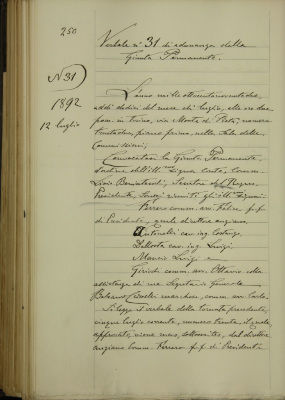 250
Verbale n° 31 di adunanza della
Giunta Permanente.
N 31
1892
12 luglio
L'anno mille ottocentonovantadue,
addì dodici del mese di luglio, alle ore due
pom. in Torino, via Mosta di Pietà, numero
trentadue, piano primo, nella Sala delle
Commissioni;
Convocatasi la Giunta Permanente,
d'ordine dell'Ill. Signor Conte, Comm.
Senatore del Regno,
Presidente, sonosi riuniti gli Ill. Signori:
Ferrero comm. avv. Felice, f.f.
di Presidente, quale direttore anziano,
Antonelli cav. ing. Costanzo,
Dellosta cav. ing. Luigi,
Mancio Luigi e
Girindi comm. avv. Ottavio colla
assistenza di me Segretario Generale
Balsamo Crivelli marchese, comm. avv. Carlo.
Si legge il verbale della tornata precedente,
cinque luglio corrente, numero trenta, il quale,
approvato, viene meco, sottoscritto, dal direttore
anziano Comm. Ferrero f.f. di Presidente